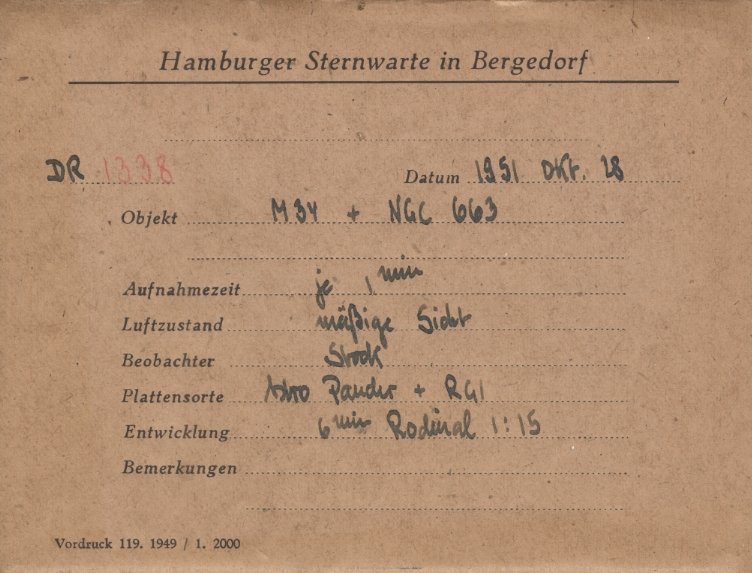 Hamburger Sternwarte in Bergedorf
DR 1338 Datum 1951 Okt. 28
Objekt M 34 + NGC 663
Aufnahmezeit je 1 min
Luftzustand mäßige Sicht
Beobachter Stock
Plattensorte Astro Panchr + RG1
Entwicklung 6 min Rodinal 1:15
Bemerkungen
Vordruck 119. 1949 / 1. 2000